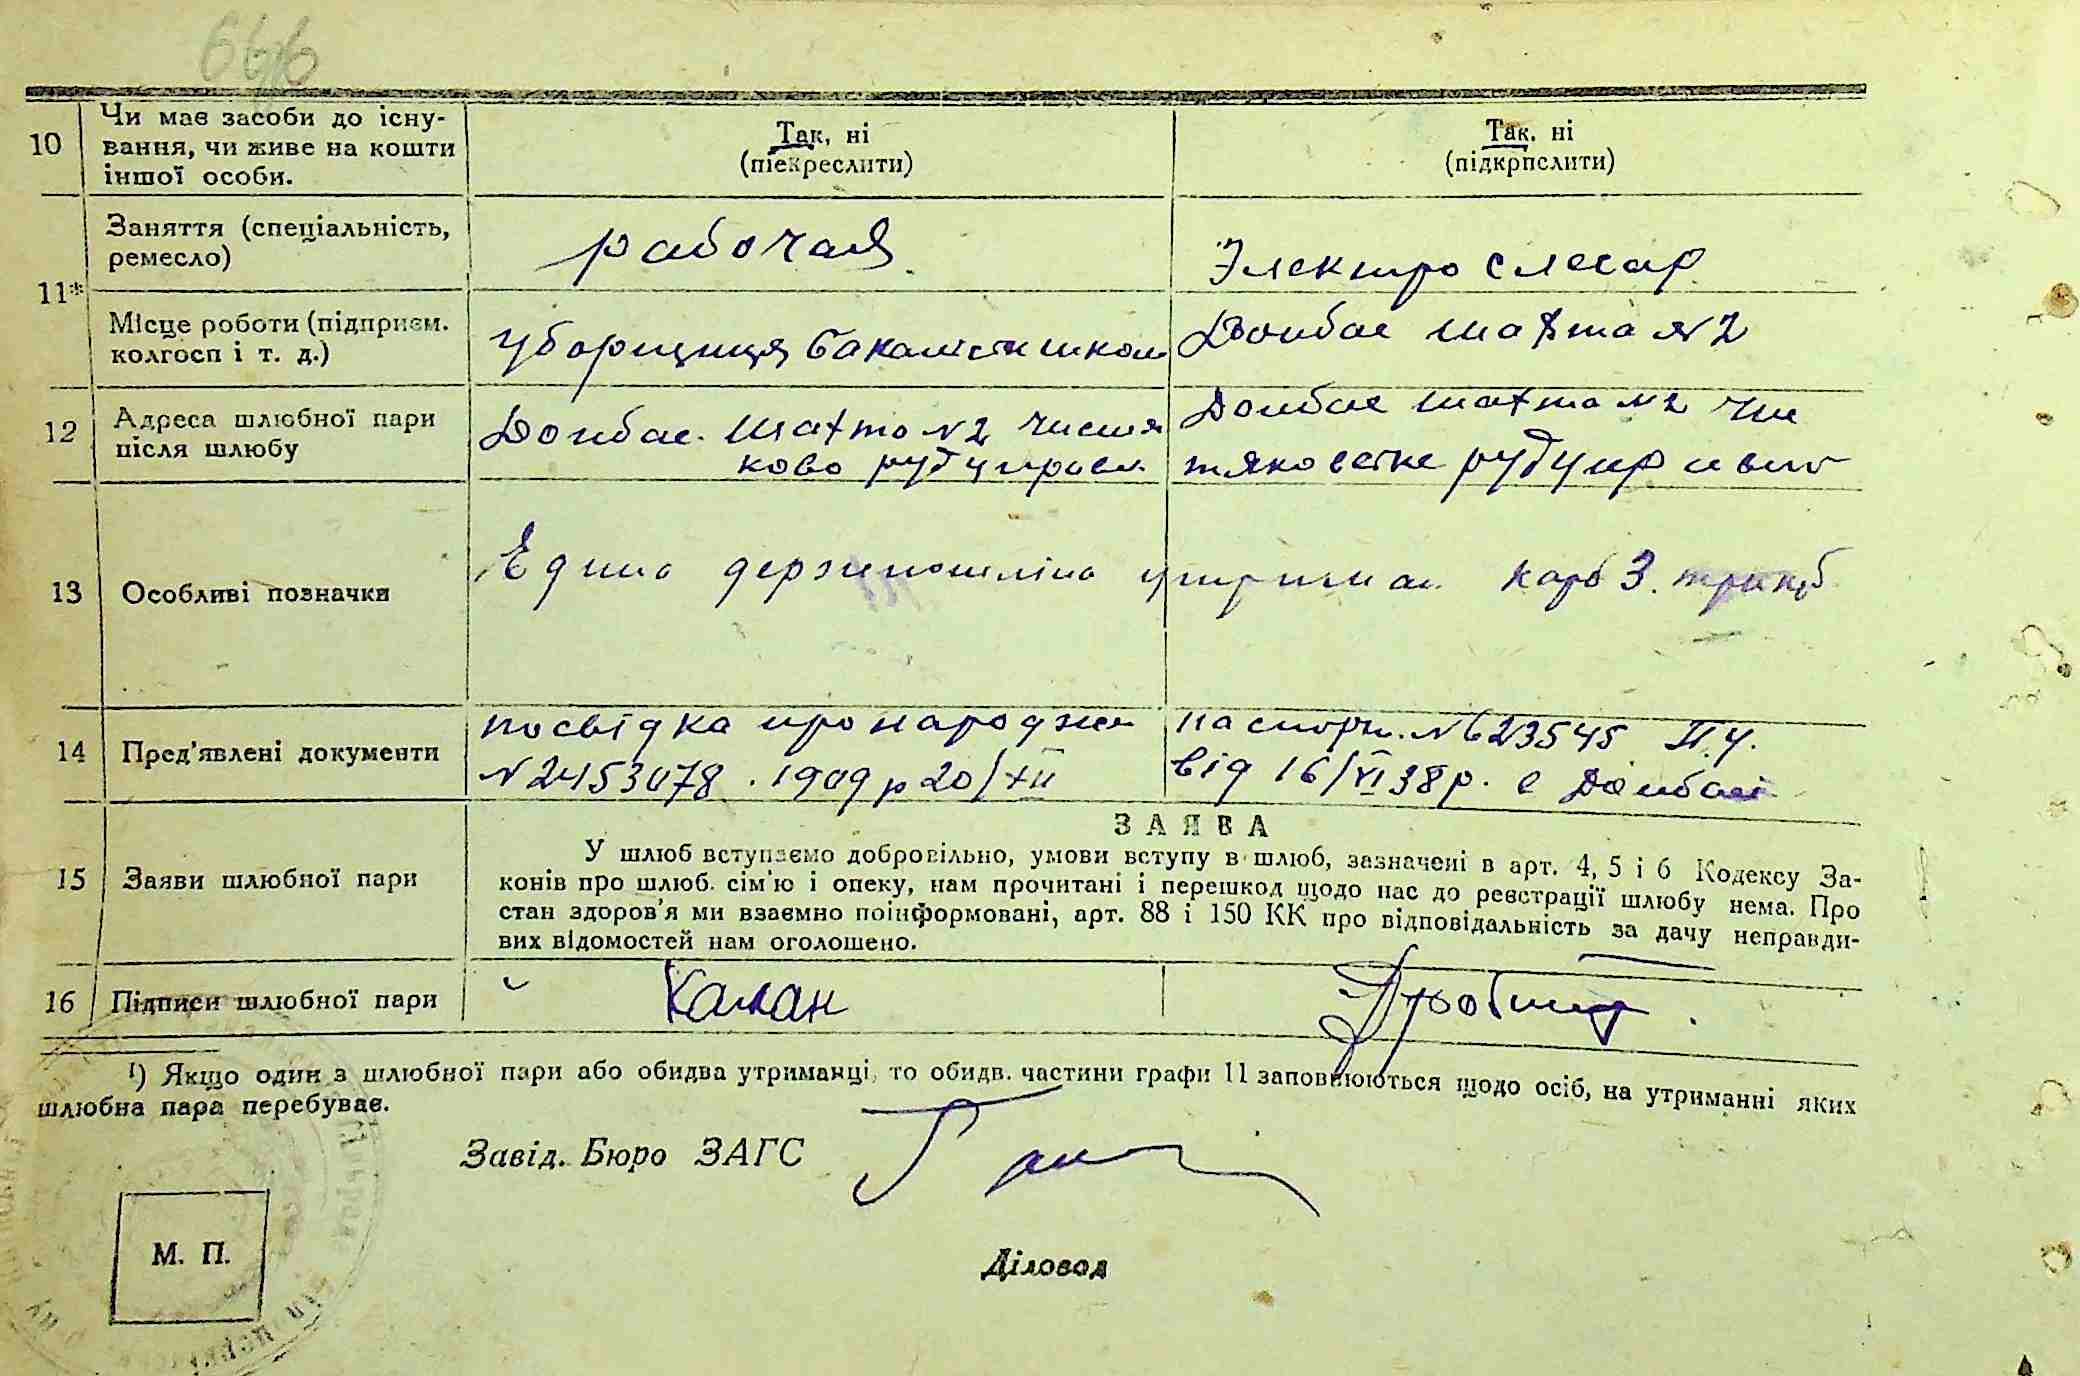 666
10 Чи має засоби до існу-
вання, чи живе на кошти
іншої особи.
Так, ні
(піекреслити)
Так, ні
(підкрпслити)
11*
Заняття (спеціальність,
ремесло)
рабочая
Электро слесар
Місце роботи (підприєм.
колгосп і т. д.)
уборщиця
Донбас шахта №2
12 Адреса шлюбної пари
після шлюбу
Донбас. Шахта №2 Чистя
ково рудуправл
Донбас шахта №2 Чис
тяковское рудуправл
13 Особливі позначки
Едина держпошліна утриман. карб 3. три крб
14 Пред'явлені документи
посвідка про народжен
№2453078. 1909 р 20/XII
паспорт. №623545 П.У.
від 16/VI 38 р. с Донбасі
ЗАЯВА
15 Заяви шлюбної пари
У шлюб вступаємо добровільно, умови вступу в шлюб, зазначені в арт. 4, 5 і 6 Кодексу За-
конів про шлюб. сім'ю і опеку, нам прочитані і перешкод щодо нас до реєстрації шлюбу нема. Про
стан здоров'я ми взаємно поінформовані, арт. 88 і 150 КК про відповідальність за дачу неправди-
вих відомостей нам оголошено.
16 Підписи шлюбної пари
Калан
¹) Якщо один з шлюбної пари або обидва утриманці, то обидв. частини графи 11 заповнюються щодо осіб, на утриманні яких
шлюбна пара перебуває.
Завід. Бюро ЗАГС
М. П.
Діловод